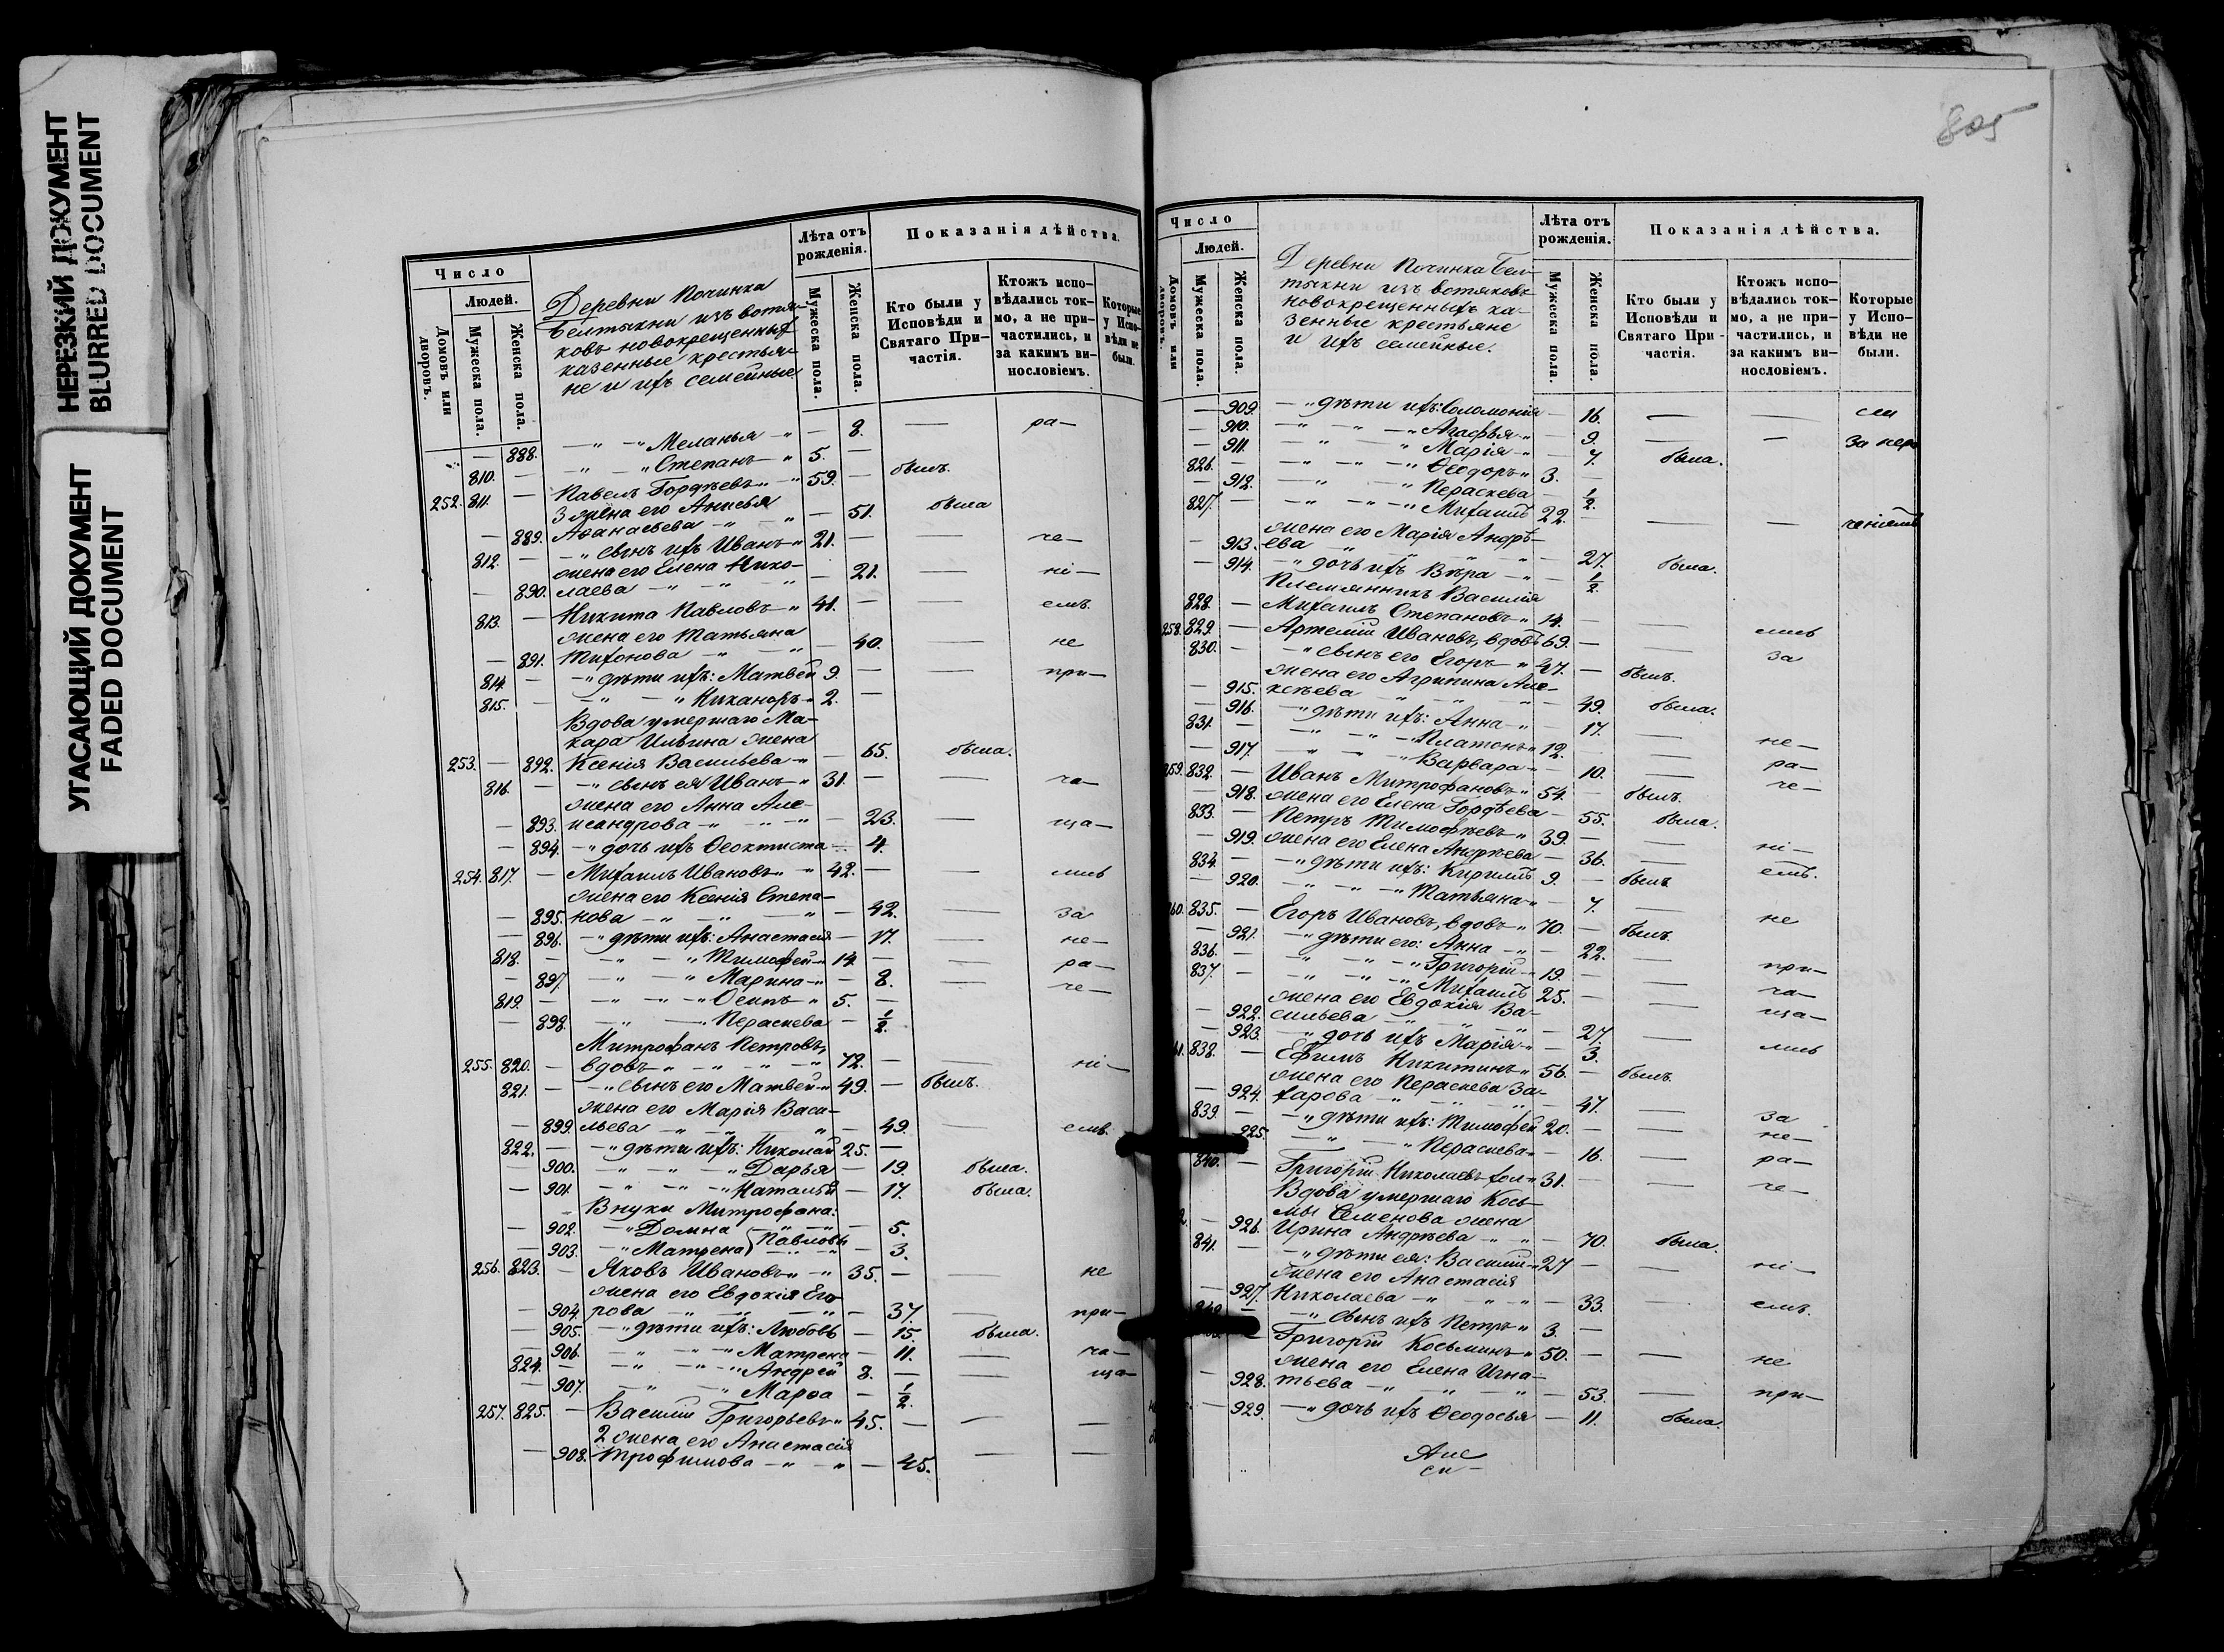 НЕРЕЗКИЙ ДОКУМЕНТ
BLURRED DOCUMENT
УГАСАЮЩИЙ ДОКУМЕНТ
FADED DOCUMENT
Число
Людей.
Домовъ или дворовъ.
Мужеска пола.
Женска пола.
Деревни Починка
Белтыкни изъ вотя-
ковъ новокрещенныхъ
казенные крестья-
не и ихъ семейные
Лѣта отъ рожденія.
Мужеска пола.
Женска пола.
Показанія дѣйства.
Кто были у Исповѣди и Святаго При-частія.
Ктожъ испо-вѣдались ток-мо, а не при-частились, и за какимъ ви-нословіемъ.
Которые у Испо-вѣди не были.
— 888. —"— "Меланья —" — 8. — ра—
810. — —"— "Степанъ—" 5. —
252. 811. — Павелъ Гордѣевъ—" 59. — былъ.
3 жена его Анисья
— 889. Аѳанасьева —" — " — 51. была
812. — —"сынъ ихъ Иванъ—" 21. — — че—
жена его Елена Нико-
— 890. лаева —" — " — " — 21. — ні—
813. — Никита Павловъ—" 41. — — емъ.
жена его Татьяна
— 891. Тихонова —" — " — 40. — не
814. — —"дѣти ихъ: Матвей 9. — — при—
815. — —" — "Никаноръ—" 2. —
Вдова умершаго Ма-
кара Ильина жена
253. — 892. Ксенія Васильева—" — 65. была.
816. — —"сынъ ея Иванъ—" 31. — — ча—
жена его Анна Але-
— 893. ксандрова —" — " — " — 23. — ща—
— 894. —"дочь ихъ Ѳеоктиста — 4.
254. 817. — Михаилъ Ивановъ—" 42. — — лись
жена его Ксенія Степа-
— 895. нова —" — " — " — 42. — за
— 896. —"дѣти ихъ: Анастасія — 17. — не—
818. — —" — "Тимофей—" 14. — — ра—
897. —" — "Марина—" — 8. — че—
819. — —" — " — "Осипъ—" 5. —
— 898. —" — "Пераскева — ½.
Митрофанъ Петровъ,
255. 820. — вдовъ—" — " — " 72. — — ні—
821. — —"сынъ его Матвей—" 49. — былъ.
жена его Марія Васи-
— 899. льева —" — " — " — 49. — емъ.
822. — —"дѣти ихъ: Николай 25. —
— 900. —" — " — "Дарья — 19. была.
— 901. —" — " — "Наталья — 17. была.
Внуки Митрофана:
— 902. —"Домна — 5.
Павловы
— 903. —"Матрена — 3.
256. 823. — Яковъ Ивановъ—" 35. — — не
жена его Евдокія Его-
— 904. рова —" — " — " — 37. — при—
— 905. —"дѣти ихъ: Любовь — 15. была.
— 906. —" — " — "Матрена — 11. — ча—
824. — —" — " — "Андрей 8. — — ща—
— 907. —" — "Марѳа — ½.
257. 825. — Василій Григорьевъ—" 45. — — —
2 жена его Анастасія
— 908. Трофимова —" — " — 45. — —
805
Число
Людей.
Домовъ или дворовъ.
Мужеска пола.
Женска пола.
Деревни Починка Бел-
тыкни изъ вотяковъ
новокрещенныхъ ка-
зенные крестьяне
и ихъ семейные.
Лѣта отъ рожденія.
Мужеска пола.
Женска пола.
Показанія дѣйства.
Кто были у Исповѣди и Святаго При-частія.
Ктожъ испо-вѣдались ток-мо, а не при-частились, и за какимъ ви-нословіемъ.
Которые у Испо-вѣди не были.
— 909. —"дѣти ихъ: Соломонія — 16. — —
— 910. —" — " — "Агафья—" — 9. — — за нера
— 911. —" — "Марія—" — 7. была.
826. — —" — " — "Ѳеодоръ—" 3. —
— 912. —" — "Пераскева — ½.
827. — —" — " — "Михаилъ 22. — — — ченіемъ
жена его Марія Андрѣ-
— 913. ева —" — " — " — 27. была.
— 914. —"дочь ихъ Вѣра —" — ½.
Племянникъ Василія
828. — Михаилъ Степановъ—" 14. — — лись
258. 829. — Артемій Ивановъ, вдовъ 69. — — за
830. — —"сынъ его Егоръ—" 47. — былъ.
жена его Агрипина Але-
— 915. ксѣева —" — " — " — 49. была.
— 916. —"дѣти ихъ: Анна—" — 17. — не—
831. — —" — " — "Платонъ—" 12. — — ра—
— 917. —" — "Варвара—" — 10. — че—
259. 832. — Иванъ Митрофановъ—" 54. — былъ.
— 918. жена его Елена Гордѣева — 55. была.
833. — Петръ Тимофѣевъ—" 39. — — ні—
— 919. жена его Елена Андрѣева — 36. — емъ.
834. — —"дѣти ихъ: Кирилъ 9. — былъ
— 920. —" — " — "Татьяна—" — 7. — не
260. 835. — Егоръ Ивановъ, вдовъ—" 70. — былъ.
— 921. —"дѣти его: Анна —" — 22. — при—
836. — —" — " — "Григорій—" 19. — — ча—
837. — —" — " — "Михаилъ 25. — — ща—
жена его Евдокія Ва-
— 922. сильева —" — " — " — 27. — лись
— 923. —"дочь ихъ Марія—" — 3.
838. — Ефимъ Никитинъ—" 56. — былъ.
жена его Пераскева За-
— 924. харова —" — " — " — 47. — за
839. — —"дѣти ихъ: Тимофей 20. — — не—
925. —" — "Пераскева—" — 16. — ра—
840. — Григорій Николаевъ хол—" 31. — — че—
Вдова умершаго Кось-
мы Семенова жена
— 926. Ирина Андрѣева —" — " — 70. была.
841. — —"дѣти ея: Василій—" 27 — — ні—
жена его Анастасія
— 927. Николаева —" — " — " — 33. — емъ.
— —"сынъ ихъ Петръ—" 3. —
Григорій Косьминъ—" 50. — — не
жена его Елена Игна-
— 928. тьева —" — " — " — 53. — при—
— 929. —"дочь ихъ Ѳеодосья — 11. была.
Але